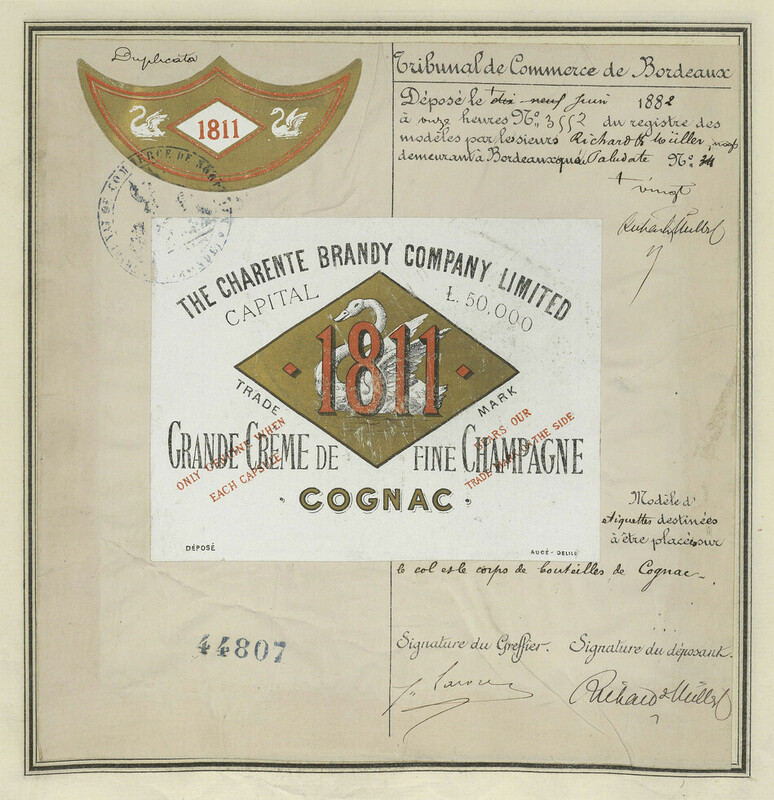 Duplicata
1811
TRIBUNAL DE COMMERCE DE
Tribunal de Commerce de Bordeaux
Déposé le dix neuf Juin 1882
à onze heures N° 3552 du registre des
modèles par les sieurs Richard & Müller,
demeurant à Bordeaux quai Paludate N°
vingt
Richard & Müller
THE CHARENTE BRANDY COMPANY LIMITED
CAPITAL £.50,000
1811
TRADE MARK
ONLY GENUINE WHEN
EACH CAPSULE
BEARS OUR
TRADE MARK ON THE SIDE
GRANDE CRÊME DE FINE CHAMPAGNE
COGNAC
DÉPOSÉ
AUGÉ-DELILE
Modèle d'
étiquettes destinées
à être placées sur
le col et le corps de bouteilles de Cognac
44807
Signature du Greffier. Signature du déposant.
Richard & Müller